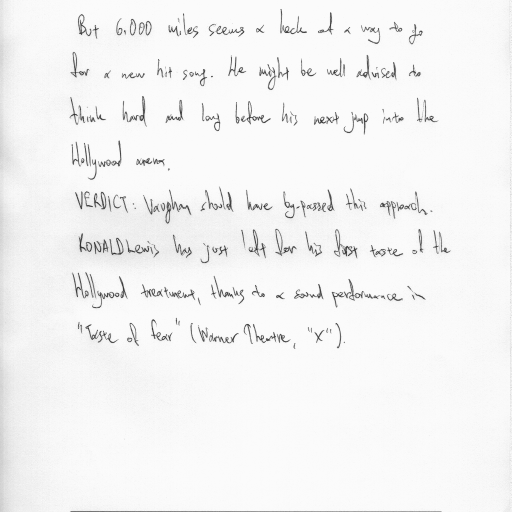 But 6,000 miles seems a heck of a way to go
for a new hit song. He might be well advised to
think hard and long before his next jump into the
Hollywood arena.
VERDICT: Vaughan should have by-passed this approach.
RONALD Lewis has just left for his first taste of the
Hollywood treatment, thanks to a sound performance in
"Taste of Fear" (Warner Theatre, "X").